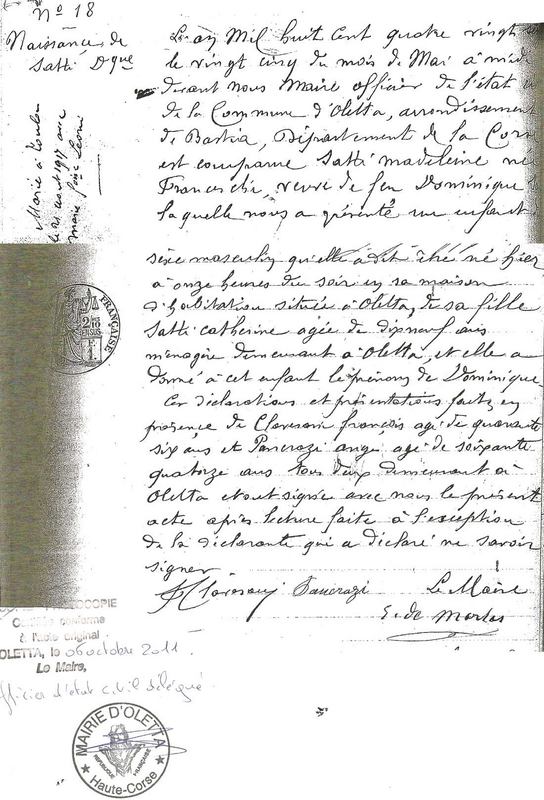 N° 18
Naissance de
Satti Dque
Marie à Toulon
le 21 août 1917 avec
marie
L'an Mil huit cent quatre vingt
le vingt cinq du mois de Mai à midi
devant nous Maire officier de l'état
de la Commune d'Oletta, arrondissement
de Bastia, Département de la Corse
est comparue Satti madeleine née
Franceschi, veuve de feu Dominique
laquelle nous a présenté un enfant
sexe masculin qu'elle a dit être né hier
à onze heures du soir en sa maison
d'habitation située à Oletta, de sa fille
Satti Catherine agée de dixneuf ans
ménagère demeurant à Oletta, et elle a
donné à cet enfant le prénom de Dominique
Ces déclarations et présentations faites en
présence de françois agé de quarante
six ans et Pancrazi ange agé de soixante
quatorze ans tous deux demeurant à
Oletta et ont signé avec nous le présent
acte après lecture faite à l'exception
de la déclarante qui a déclaré ne savoir
signer
Pancrazi Le Maire
FRANÇAISE
PHOTOCOPIE
Certifiée conforme
à l'acte original
OLETTA, le 06 octobre 2011
Le Maire,
officier d'état civil délégué
MAIRIE D'OLETTA
REPUBLIQUE FRANÇAISE
★ Haute-Corse ★